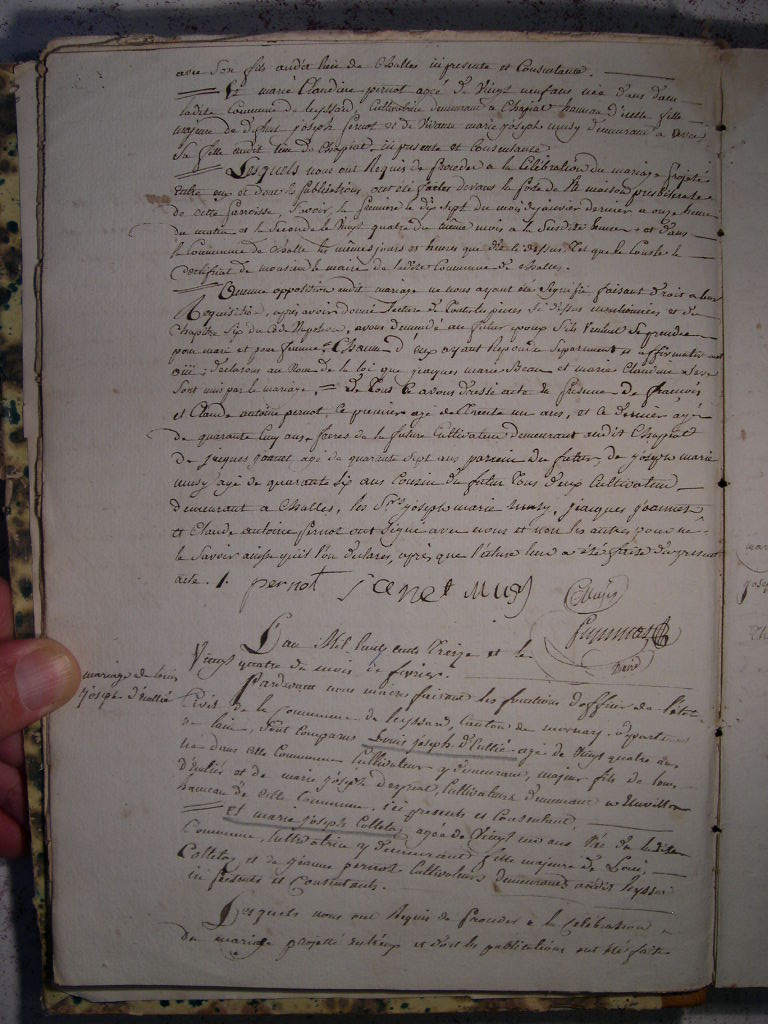 avec son fils audit lieu de Challes ici presente et Consentante.
Et marie Claudine pernot agée de Vingt neuf ans née dans
ladite Commune de leyssard, Cultivatrice demeurant a Chapiat hameau d'icelle fille
majeure de joseph pernot et de Vivante marie joseph musy demeurant a
Sa fille audit lieu de Chapiat ici presente et Consentante
Lesquels nous ont Requis de proceder a la Célébration du mariage projeté
entre eux et dont les publications ont été faites devant la porte de la maison presbiterale
de cette paroisse, Savoir, la premiere le dix sept du mois de janvier dernier a onze heures
du matin et la Seconde le Vingt quatre du même mois a la Susdite heure et dans
la Commune de Challe les mêmes jours et heures que dit ci dessus tel que le Conste le
Certificat de monsieur le maire de ladite Commune de Challes.
Aucune opposition audit mariage ne nous ayant été Signifié faisant droit a leur
Requisition, après avoir donné lecture de toutes les pieces ci dessus mentionnées et du
Chapitre Six du Code Napoleon, avons demandé au futur epoux s'ils veulent se prendre
pour mari et pour femme, Chacun d'eux ayant Repondu Separement et affirmativement
oui; declarons au Nom de la loi que jacques marie et marie Claudine pernot
Sont unis par le mariage. De tout Ce avons dressé acte en presence de françois
et Claude antoine pernot, le premier agé de trente un ans, et le dernier agé
de quarante ans freres de la future Cultivateur demeurant audit Chapiat
De jacques joannet agé de quarante Sept ans parrain du futur, de joseph marie
musy agé de quarante Six ans Cousin du futur tous deux Cultivateur
demeurant a Challes, les Srs joseph marie musy, jacques joannet
et Claude antoine pernot ont Signé avec nous et non les autres pour ne
le Savoir ainsi qu'il l'on declarés, après que lecture leur a été faite du present
acte. /. pernot Musy
L'an Mil huit cents treize et le
Vingt quatre du mois de fevrier.
mariage de louis
joseph d'hullié
Pardevant nous maire faisant les fonctions d'officier de l'état
Civil de la Commune de leyssard, Canton de
de lain, Sont comparus Louis joseph D'hullié agé de Vingt quatre ans
né dans cette Commune Cultivateur y demeurant, majeur fils de louis
d'hullié et de marie joseph Cultivateurs demeurant a
hameau de cette Commune, ici presents et Consentant
Et marie joseph Colletaz agée de Vingt un ans Née en ladite
Commune, Cultivatrice y demeurant fille majeure de Louis
Colletaz et de jeanne pernot Cultivateurs demeurant audit leyssard
ici presents et Consentants.
Lesquels nous ont Requis de proceder a la Celebration
du mariage projetté entr'eux et dont les publications ont été faite